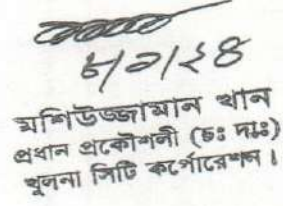 ৮/৯/২৪
মশিউজ্জামান খান
প্রধান প্রকৌশলী (চঃ দাঃ)
খুলনা সিটি কর্পোরেশন।